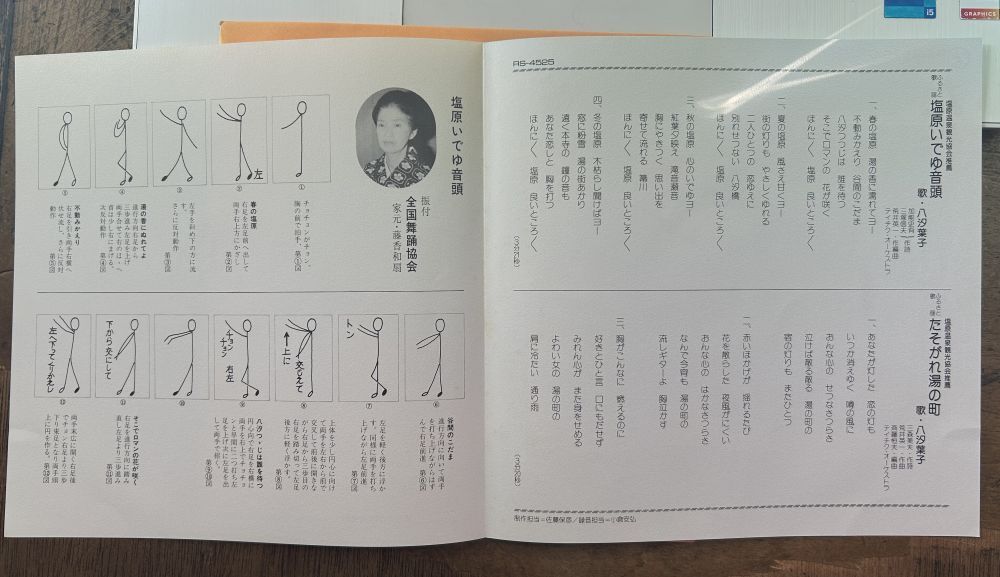 RS-4525
塩原温泉観光協会推薦
ふるさと歌謡
塩原いでゆ音頭
歌・八汐葉子
テイチク・オーケストラ
一、春の塩原 湯の香に濡れてヨー
不動みかえり 谷間のこだま
八汐つつじは 誰を待つ
そこでロマンの 花が咲く
ほんに〳〵 塩原 良いところ〳〵
二、夏の塩原 風さえ甘くヨー
街の灯りも やさしくゆれる
二人ひとつの 恋ゆえに
別れせつない 八汐橋
ほんに〳〵 塩原 良いところ〳〵
三、秋の塩原 心のいでゆヨー
紅葉夕映え 滝音瀬音
胸にやきつく 思い出を
寄せて流れる 箒川
ほんに〳〵 塩原 良いところ〳〵
四、冬の塩原 木枯らし聞けばヨー
窓に粉雪 湯の街あかり
遠く本寺の 鐘の音も
あなた恋しと 胸を打つ
ほんに〳〵 塩原 良いところ〳〵
塩原温泉観光協会推薦
ふるさと歌謡
たそがれ湯の町
歌 八汐葉子
テイチク・オーケストラ
一、あなたが灯した 恋の灯も
いつか消えゆく 噂の風に
おんな心の せつなさつらさ
泣けば散る散る 湯の町の
宿の灯りも またひとつ
二、赤いほかげが 揺れるたび
花を散らした 夜風がにくい
おんな心の はかなさつらさ
なんで今宵も 湯の町の
流しギターよ 胸泣かす
三、胸がこんなに 燃えるのに
好きとひと言 口にもだせず
みれん心が また身をせめる
よわい女の 湯の町の
肩に冷たい 通り雨
制作担当=佐藤保彦/録音担当=小倉安弘
塩原いでゆ音頭
振付
全国舞踊協会
家元・藤香和扇
①
②
左
③
④
⑤
チョチョンがチョン。
胸の前で拍手。 第①図
春の塩原
右足を左足前へ出して
両手右上方にかざし
第②図
左手を斜め下の方に流
す。 第③図
さらに反対動作
湯の香にぬれてよ
進行方向左足から
三歩進み左足を上げ
両手合せて右のほゝへ
首は少し右にまげる。
次反対動作 第④図
不動みかえり
右足を引き両手右横へ
伏せ流し、さらに反対
動作 第⑤図
⑥
⑦
トン
⑧
交じえて
↑上に
⑨
チョン
チョン
右左
⑩
⑪
下から交にして
⑫
左へ下ってくりかえし
谷間のこだま
進行方向に向いて両手
を打ち上げながらはず
んで右足前進
第⑥図
左足を軽く後方に浮か
す。同様に両手を打ち
上げながら左足前進
第⑦図
上体を少し円心に向け
て両手を左右から前で
交叉して前後に開きな
がら右足から三歩目の
右足を踏み切って左足
後方に軽く浮かす。
第⑧図
八汐つゝじは誰を待つ
円心向で右足を右横に
両手を右上でチョチョ
ンと早間に二つ打ち左
足を上げ次に左足を出
して両手で招く。
第⑨⑩図
そこでロマンの花が咲く
右足を進行方向に踏み
直し左足より三歩進み
第⑪図
両手末広に開く右足後
でチョンと左足より三歩
下り束足となり両手頭
上に円を作る。 第⑫図
i5
GRAPHICS